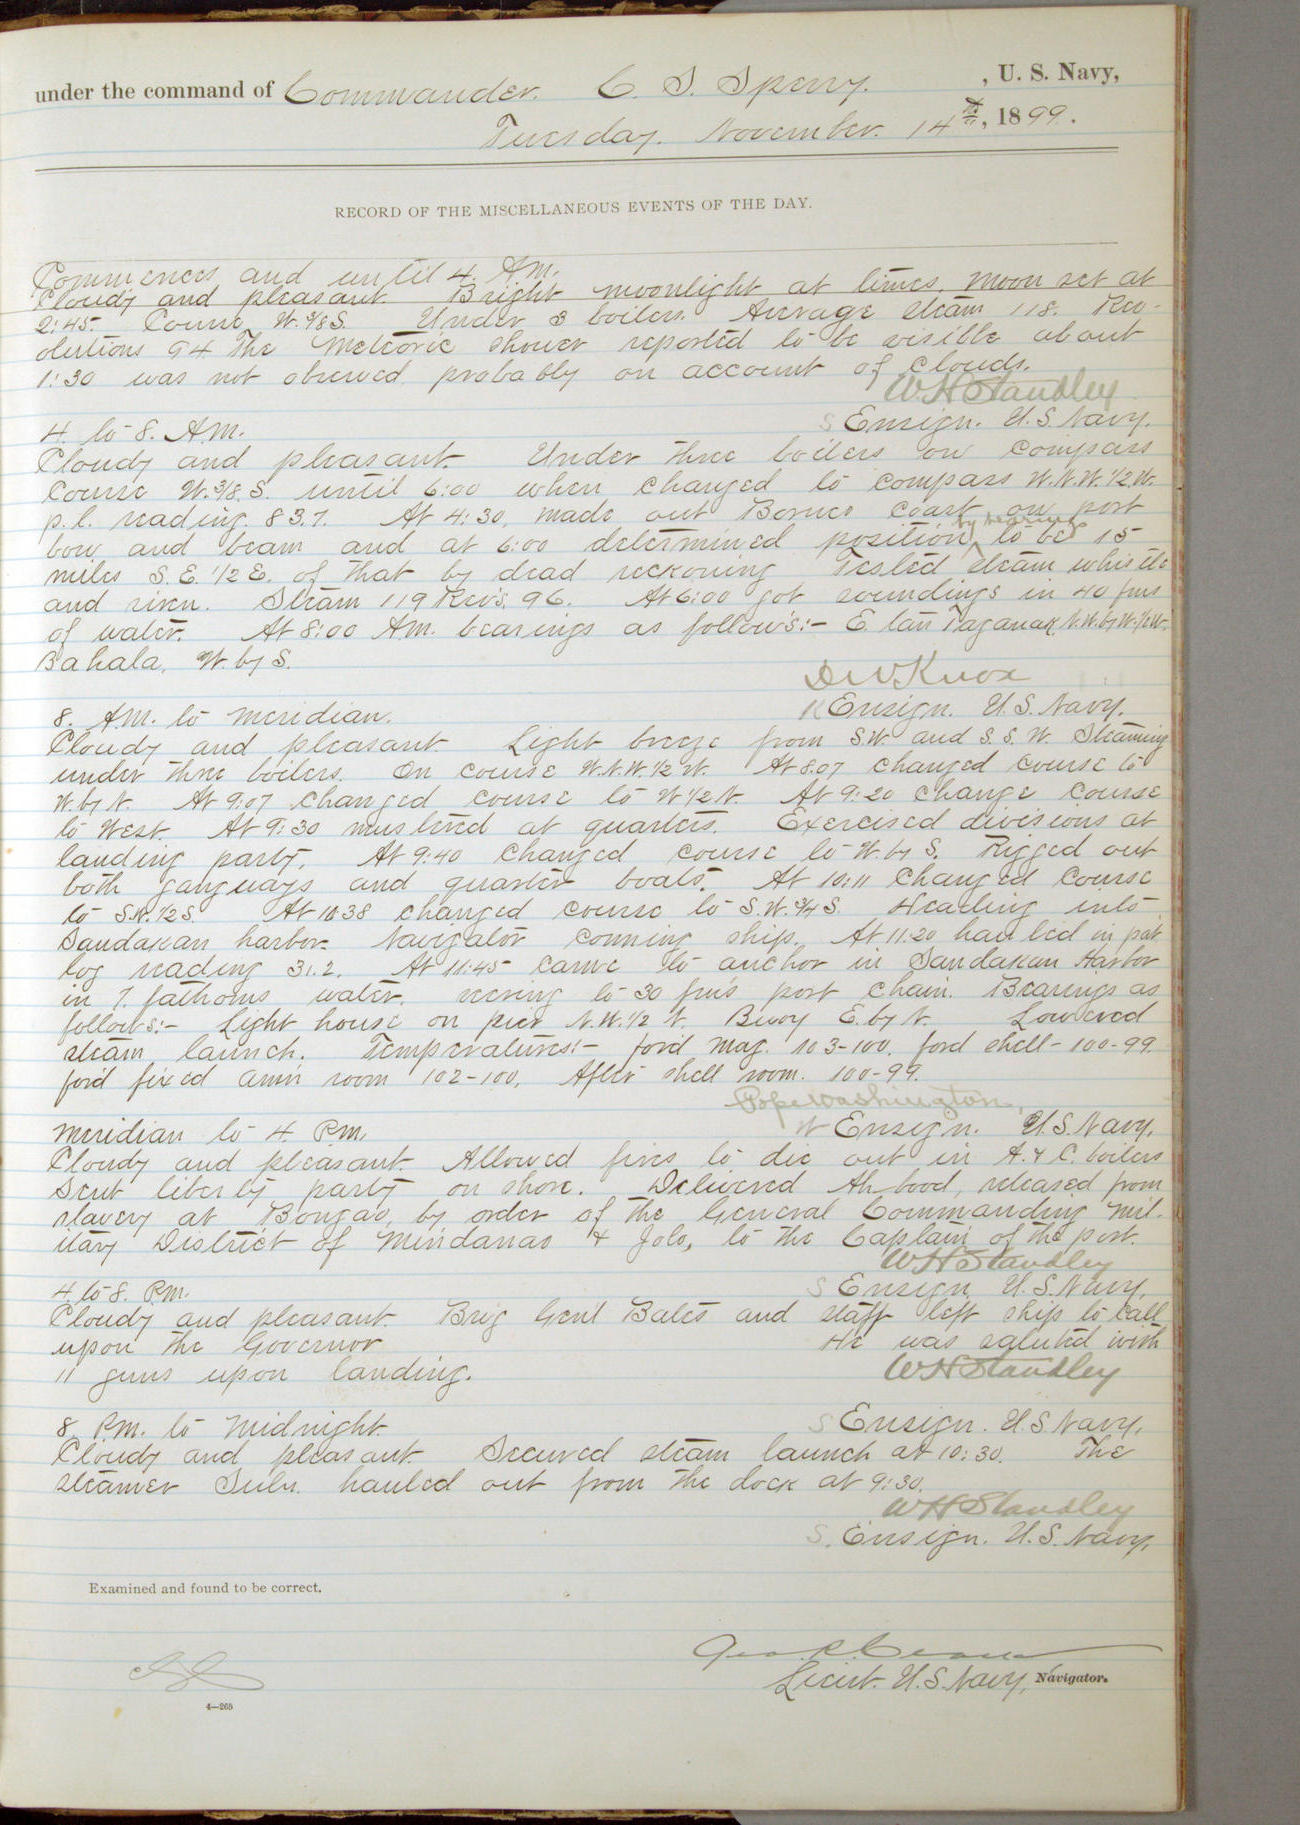 under the command of Commander. C. S. Sperry. , U. S. Navy,
Tuesday. November. 14th, 1899.
RECORD OF THE MISCELLANEOUS EVENTS OF THE DAY.
Commences and until 4. A.M.
Cloudy and pleasant. Bright moonlight at times. Moon set at
2:45. Course W. 3/8 S. Under 3 boilers. Average steam 118. Rev-
olutions 94 The Meteoric shower reported to be visible about
1:30 was not observed probably on account of clouds.
W H Standley
S Ensign. U.S. Navy.
4. to 8. A.M.
Cloudy and pleasant. Under three boilers on compass
course W. 3/8. S. until 6:00 when changed to compass W.N.W. 1/2. W.
p. l. reading. 83.7. At 4:30, made out Borneo coast on port
bow and beam and at 6:00 determined position by bearings to be 15
miles S. E. 1/2 E. of that by dead reckoning Tested steam whistle
and siren. Steam 119 Revs. 96. At 6:00 got soundings in 40 fms
of water. At 8:00 A.M. bearings as follows:- E. tan Taganak N.W. by W. 1/2 W.
Bahala, W. by S.
D W Knox
K Ensign. U.S. Navy.
8. A.M. to meridian.
Cloudy and pleasant. Light breeze from SW. and S. S. W. Steaming
under three boilers. On course W.N.W. 1/2 W. At 8:07 changed course to
W. by N. At 9:07 changed course to W 1/2 N. At 9:20 change course
to West. At 9:30 mustered at quarters. Exercised divisions at
landing party. At 9:40 changed course to W. by S. Rigged out
both gangways and quarter boats. At 10:11 changed course
to S.W. 1/2 S. At 10 38 changed course to S. W. 3/4 S. Heading into
Sandakan harbor. Navigator conning ship. At 11:20 hauled in pat
log reading 31.2. At 11:45 came to anchor in Sandakan Harbor
in 7. fathoms water. veering to 30 fms port chain. Bearings as
follows:- Light house on pier N.W. 1/2 N. Buoy E. by N. Lowered
steam launch. Temperatures:- for'd mag. 103-100. ford shell - 100-99.
for'd fixed am'n room 102-100. After shell room. 100-99.
Pope Washington,
W Ensign. U.S. Navy.
Meridian to 4. P.M.
Cloudy and pleasant. Allowed fires to die out in A. & C. boilers
Sent liberty party on shore. Delivered Ah bood, released from
slavery at Bongao, by order of the General Commanding Mil-
itary District of Mindanao & Jolo, to the Captain of the port.
W H Standley
S Ensign U.S. Navy.
4. to 8. P.M.
Cloudy and pleasant. Brig Genl Bates and staff left ship to call
upon the Governor He was saluted with
11 guns upon landing.
W H Standley
S Ensign. U.S. Navy.
8. P.M. to Midnight.
Cloudy and pleasant. Secured steam launch at 10:30. The
steamer hauled out from the dock at 9:30.
W H Standley
S. Ensign. U.S. Navy.
Examined and found to be correct.
Lieut. U.S. Navy, Navigator.
4—265